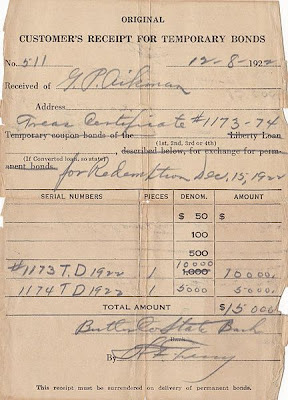 ORIGINAL
CUSTOMER'S RECEIPT FOR TEMPORARY BONDS
No. 511 12-8-1922
Received of G. P. Aikman
Address
Treas Certificate #1173-74
Temporary coupon bonds of the Liberty Loan
(1st, 2nd, 3rd or 4th)
, described below, for exchange for perm-
(If Converted loan, so state)
anent bonds. for Redemption Dec. 15, 1922
SERIAL NUMBERS PIECES DENOM. AMOUNT
$ 50 $
100
500
10000
#1173 T.D 1922 1 1,000 10000.
1174 T.D 1922 1 5000 5000.
TOTAL AMOUNT $15000
Butler Co State Bank
Bank
By
This receipt must be surrendered on delivery of permanent bonds.